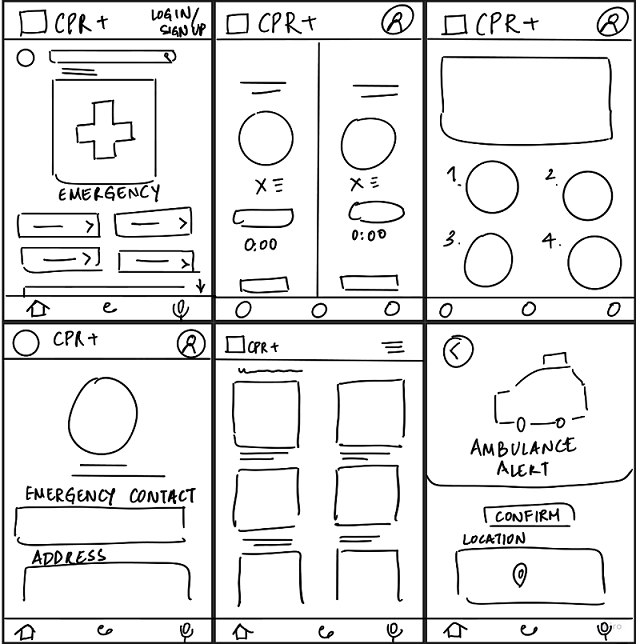 CPR+
LOGIN/
SIGN UP
EMERGENCY
CPR+
X
X
0:00
0:00
CPR+
1.
2.
3.
4.
CPR+
EMERGENCY CONTACT
ADDRESS
CPR+
AMBULANCE
ALERT
CONFIRM
LOCATION